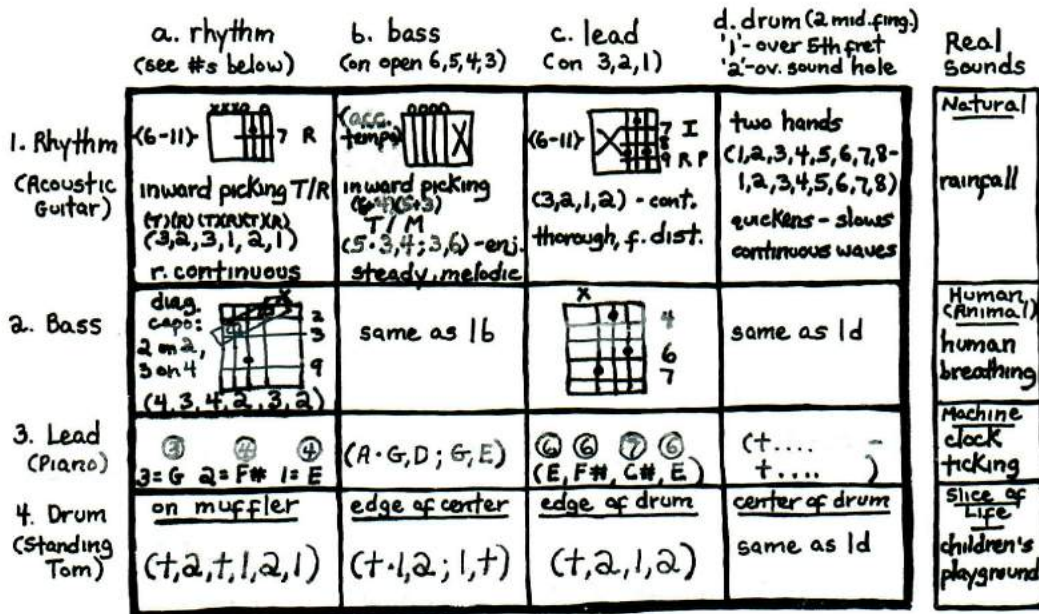 a. rhythm
(see #s below)
b. bass
(on open 6,5,4,3)
c. lead
(on 3,2,1)
d. drum (2 mid. fing.)
'1'- over 5th fret
'2'-ov. sound hole
Real
Sounds
1. Rhythm
(Acoustic
Guitar)
(6-11)
xxxo o
7 R
inward picking T/R
(T)(R)(T)(R)(T)(R)
(3,2,3,1,2,1)
r. continuous
(acc.
tempo)
oooo
X
inward picking
T/M
(5·3,4;3,6)-enj.
steady, melodic
(6-11)
X
7 I
8
9 R P
(3,2,1,2) - cont.
thorough, f. dist.
two hands
(1,2,3,4,5,6,7,8-
1,2,3,4,5,6,7,8)
quickens - slows
continuous waves
Natural
rainfall
2. Bass
diag.
capo:
2 on 2,
3 on 4
X
2
3
9
(4,3,4,2,3,2)
same as 1b
X
4
6
7
same as 1d
Human
(Animal)
human
breathing
3. Lead
(Piano)
3 4 4
3=G 2=F# 1=E
(A·G,D;G,E)
6 6 7 6
(E,F#,C#,E)
(t.... -
t.... )
Machine
clock
ticking
4. Drum
(Standing
Tom)
on muffler
(t,2,t,1,2,1)
edge of center
(t·1,2;1,t)
edge of drum
(t,2,1,2)
center of drum
same as 1d
Slice of
Life
children's
playground